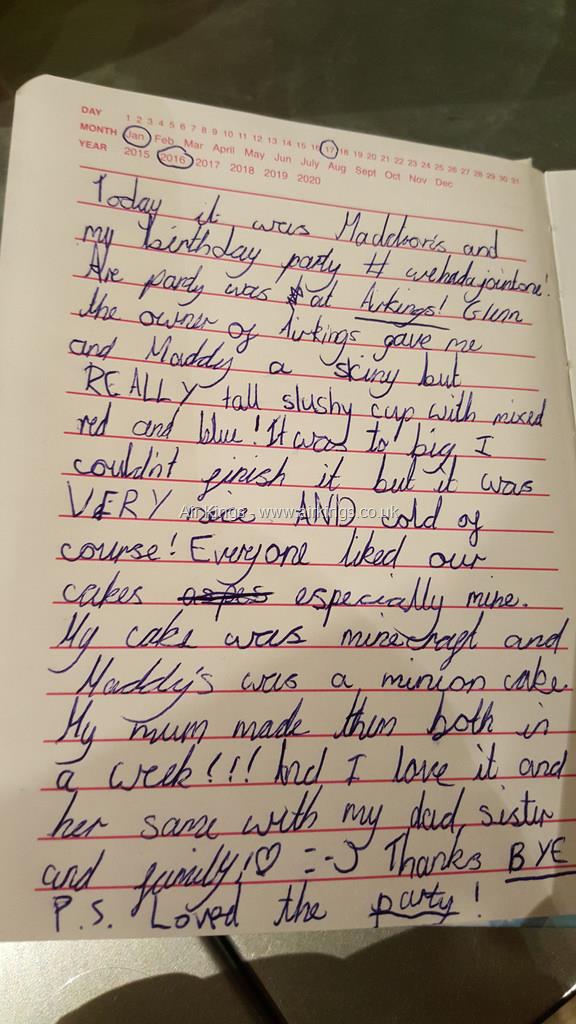 DAY 1 2 3 4 5 6 7 8 9 10 11 12 13 14 15 16 17 18 19 20 21 22 23 24 25 26 27 28 29 30 31
MONTH Jan Feb Mar April May Jun July Aug Sept Oct Nov Dec
YEAR 2015 2016 2017 2018 2019 2020
Today it was and
my birthday party # wehadajointone!
the party was at Airkings! Glenn
the owner of Airkings gave me
and Maddy a skiny but
REALLY tall slushy cup with mixed
red and blue! It was to big I
couldn't finish it but it was
VERY nice AND cold of
Air Kings - www.airkings.co.uk
course! Everyone liked our
cakes especially mine.
My cake was minecraft and
Maddy's was a minion cake.
My mum made them both in
a week!!! And I love it and
her same with my dad, sister
and family!♡ =-) Thanks BYE
P.S. Loved the party!